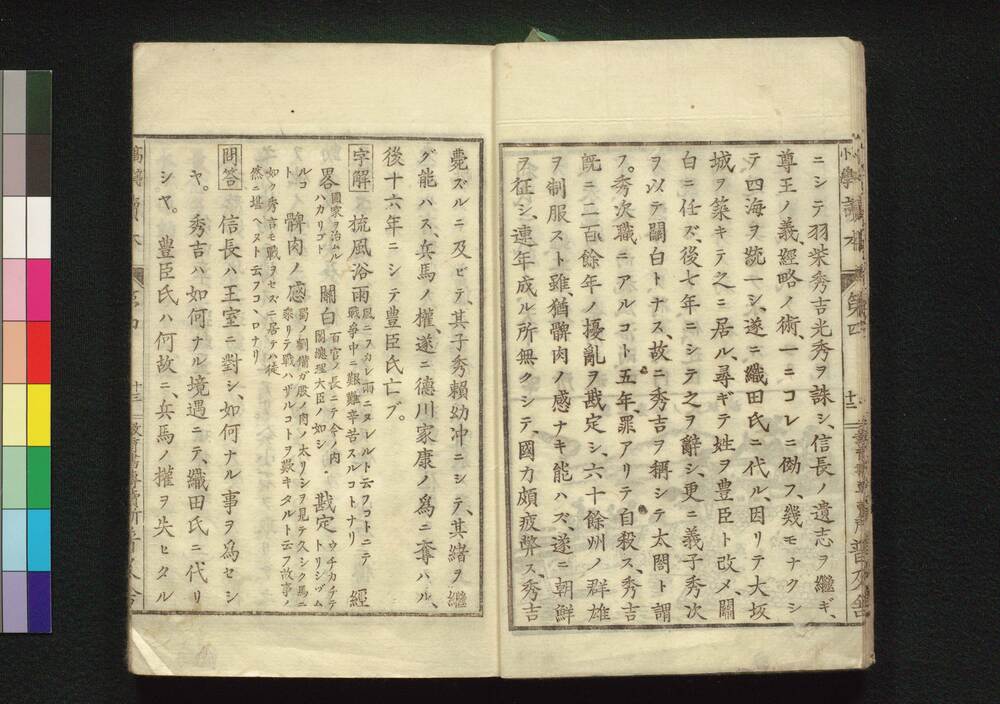 小學讀本
第四
十二
普及舍
ニシテ羽柴秀吉光秀ヲ誅シ、信長ノ遺志ヲ繼ギ、
尊王ノ義、經略ノ術、一ニコレニ倣フ、幾モナクシ
テ四海ヲ統一シ、遂ニ織田氏ニ代ル、因リテ大坂
城ヲ築キテ之ニ居ル、尋ギテ姓ヲ豊臣ト改メ、關
白ニ任ズ、後七年ニシテ之ヲ辭シ、更ニ義子秀次
ヲ以テ關白トナス、故ニ秀吉ヲ稱シテ太閤ト謂
フ。秀次職ニアルコト五年、罪アリテ自殺ス、秀吉
既ニ二百餘年ノ擾亂ヲ戡定シ、六十餘州ノ群雄
ヲ制服スト雖猶髀肉ノ感ナキ能ハズ、遂ニ朝鮮
ヲ征シ、連年成ル所無クシテ、國力頗疲弊ス、秀吉
薨ズルニ及ビテ、其子秀賴幼冲ニシテ、其緒ヲ繼
グ能ハス、兵馬ノ權、遂ニ德川家康ノ爲ニ奪ハル、
後十六年ニシテ豊臣氏亡ブ。
字解 梳風浴雨 風ニスカレ雨ニヌレルト云フコトニテ戰爭中ニ艱難辛苦スルコトナリ 經
畧 國家ヲ治ムルハカリゴト 關白 百官ノ長ニテ今ノ内閣總理大臣ノ如シ 戡定 ウチカチテトリシヅム
ルコト 髀肉ノ感 蜀ノ劉備ガ股ノ肉ノ太リシヲ見テ久シク馬ニ乘リテ戰ハザルコトヲ歎キタルト云フ故事ノ
如ク秀吉モ戰ヲセズニ居テハ徒然ニ堪ヘヌト云フコヽロナリ
問答 信長ハ王室ニ對シ、如何ナル事ヲ爲セシ
ヤ。 秀吉ハ如何ナル境遇ニテ、織田氏ニ代リ
シヤ。 豊臣氏ハ何故ニ、兵馬ノ權ヲ失ヒタル
十三